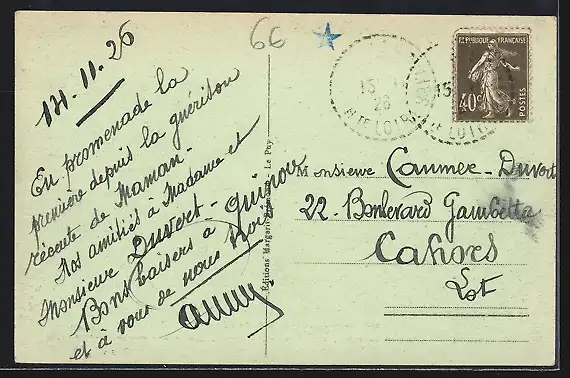 14.11.26
En promenade la
première depuis la guérison
récente de Maman.
Nos amitiés à Madame et
Monsieur Duvert.
Bons baisers à
et à vous de nous trois
66
Editions Margerit-Brémond, Le Puy
15
28
Hte LOIRE
15
Hte LOIRE
REPUBLIQUE FRANÇAISE
40c
POSTES
Monsieur Caumec-Duvert
22 - Boulevard Gambetta
Cahors
Lot